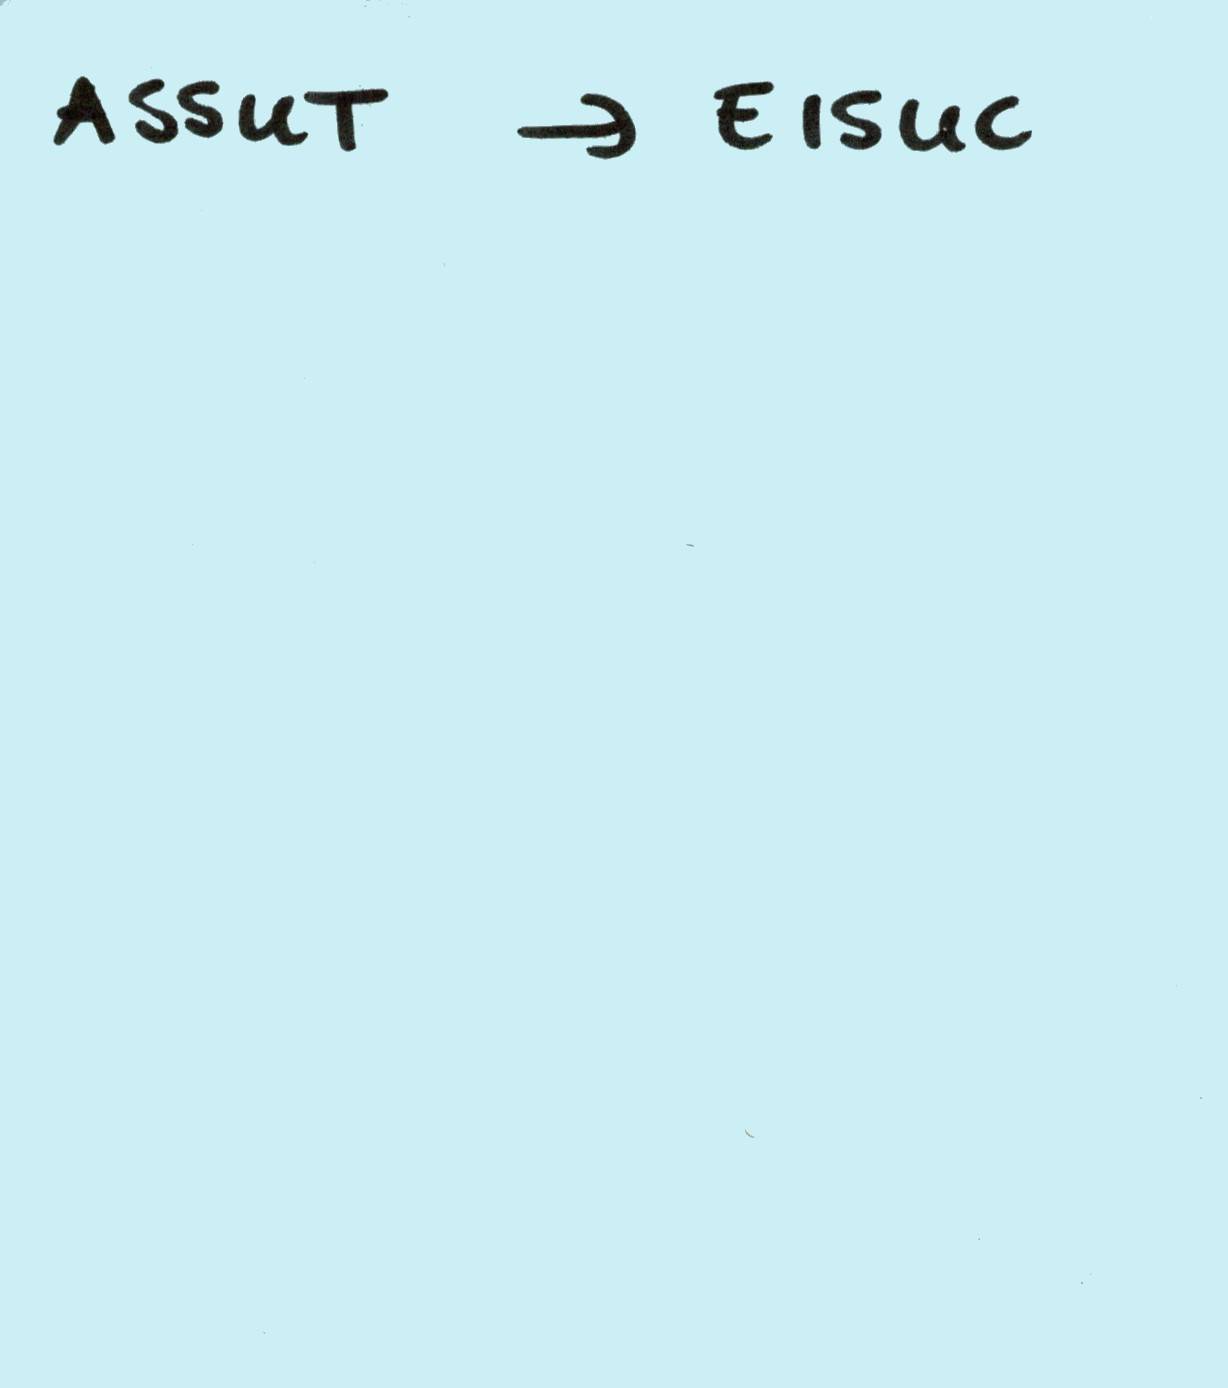 ASSUT → EISUC